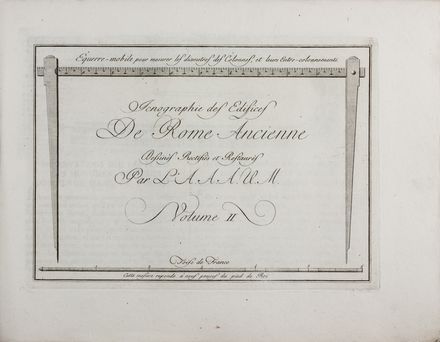 Equerre-mobile pour mesurer les diametres des Colonnes, et leurs Entre-colonnements
Icnographie des Edifices
De Rome Ancienne
Dessinés Rectifiés et Restaurés
Par L'A A A. U. M.
Volume II
Toise de France
Cette mesure reponde à neuf pouces du pied de Roi